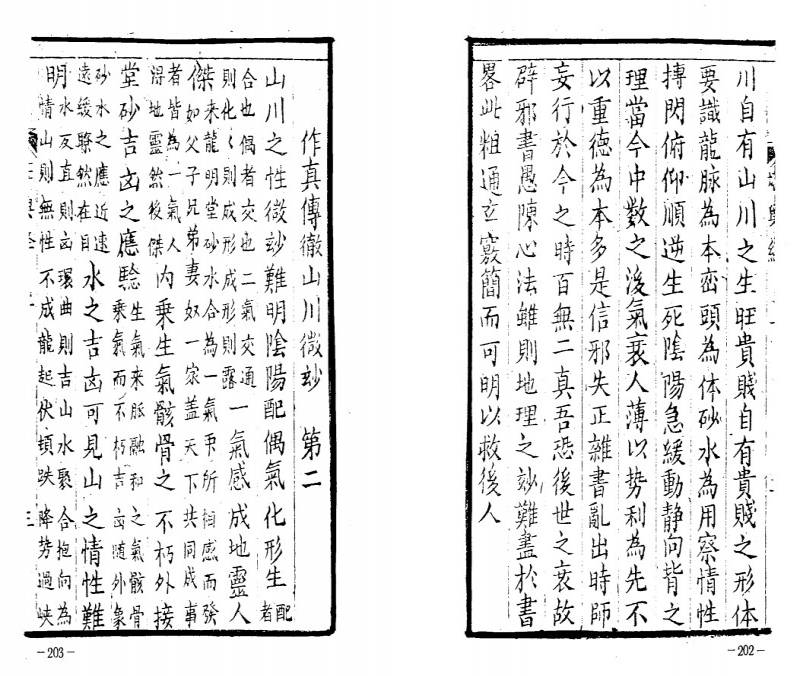 川自有山川之生旺貴賤自有貴賤之形体
要識龍脉為本峦頭為体砂水為用察情性
摶閃俯仰順逆生死陰陽急緩動静向背之
理當今中數之後氣衰人薄以势利為先不
以重德為本多是信邪失正雜書亂出時師
妄行於今之時百無二真吾恐後世之衰故
辟邪書愚陳心法雖則地理之玅難盡於書
畧此粗通玄竅簡而可明以救後人
－202－
作真傳徹山川微玅 第二
山川之性微玅難明陰陽配偶氣化形生配者
合也偶者交也二氣交通則化〻則成形成形則露一氣感成地靈人
傑來龍明堂砂水合為一氣乎所相感而發如父子兄弟妻奴一家盖天下共同成事
者皆為一氣人得地靈然後傑内乗生氣骸骨之不朽外接
堂砂吉凶之應騐生氣來脉融和之氣骸骨乘氣而不朽吉凶随外象
砂水之應近速遠緩瞭然在目水之吉凶可見山之情性難
明水反直則凶環曲則吉山水聚合抱向為情山則無性不成龍起伏頓跌降势過峡
－203－